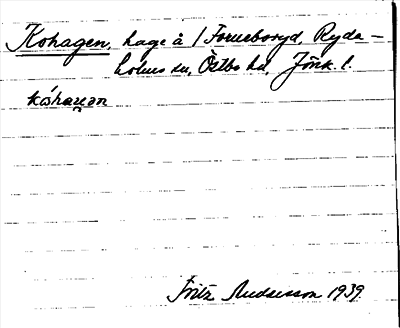 Kohagen, hage å 1 Forneboryd, Ryda-
holms sn, Östbo hd, Jönk. l.
kóhaɡən
Fritz Andersson 1939